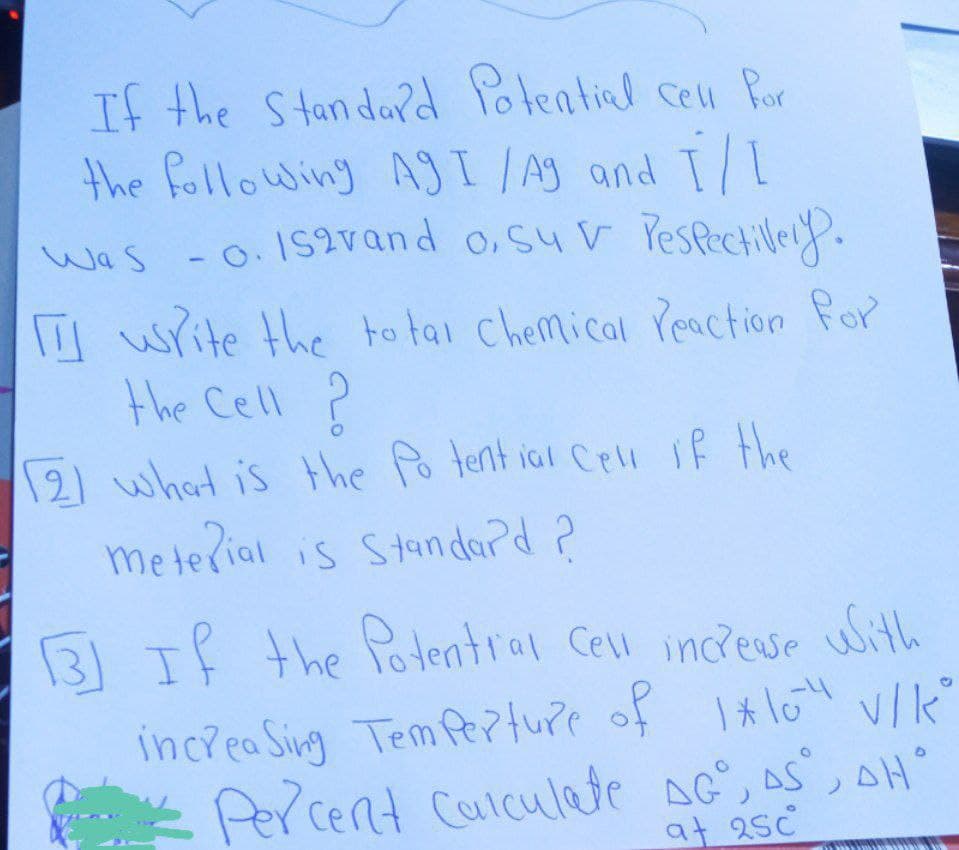 If the Standard Potential cell for
the following AgI/Ag and I/I
was -0.152v and 0,54 v Respectively.
[1] write the total chemical reaction for
the Cell ?
[2] what is the Potential Cell if the
meterial is Standard ?
[3] If the Potential Cell increase with
increasing Temperture of 1*10⁻⁴ v/k°
Percent Calculate ΔG°, ΔS°, ΔH°
at 25C°